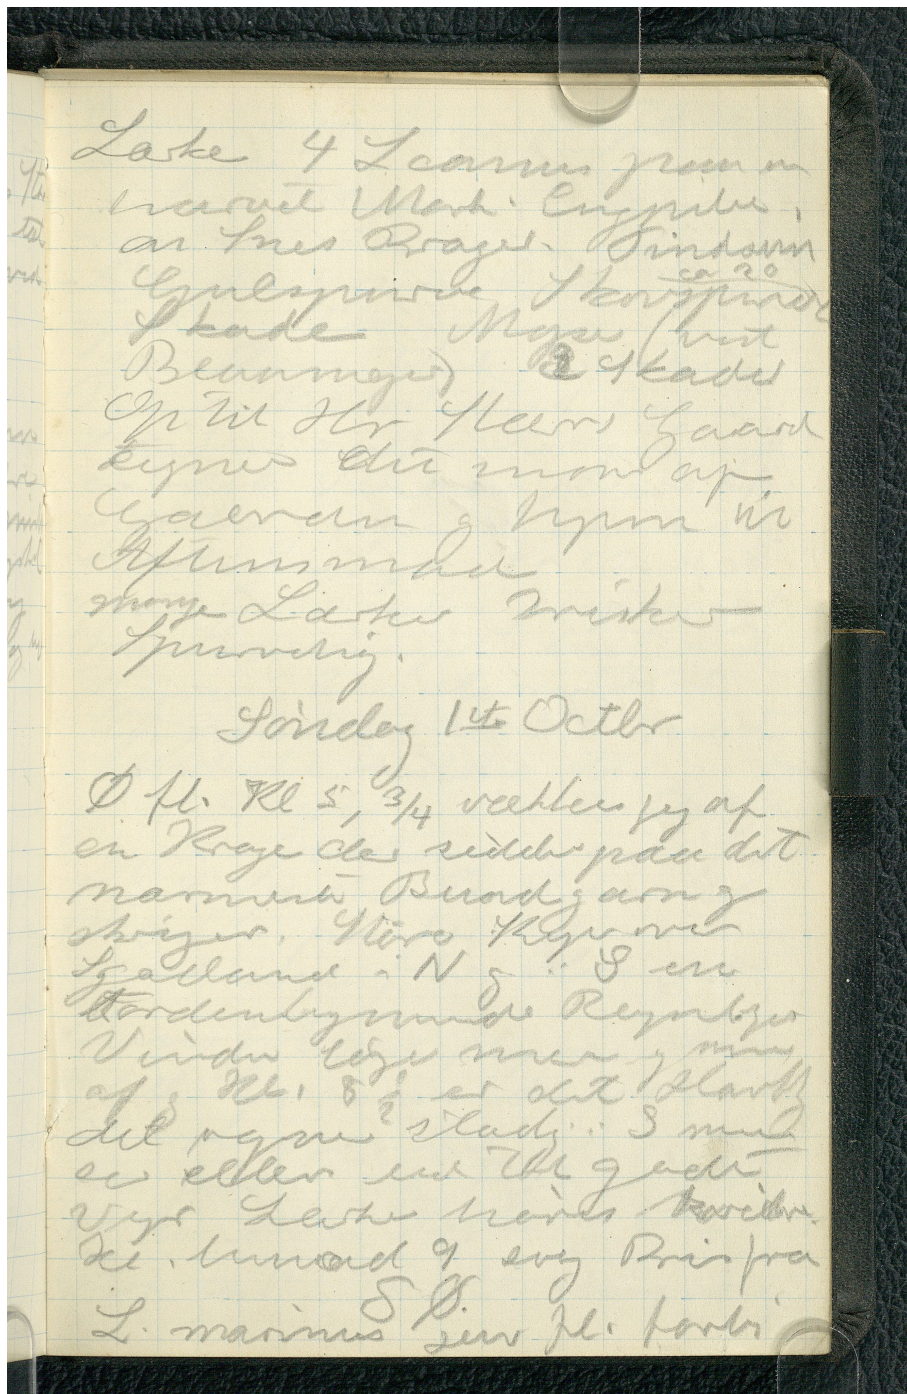 Lærke 4 L canus paa en
nærved Mark. Engpiber,
en Snes Krager. Tindsvin
ca 20
Gulspurve Skovspurve
Skade Mejse (vist
Blaamejse) 2 Skader
Op til Hr Stærs Gaard
tegner det mon af
og hjem til
Aftensmad
mange Lærker Irisker
Spurvehøg.
Søndag 1ste Octbr
Ø fl. Kl 5, 3/4 vækkes jeg af
en Krage der sidder paa det
nærmeste Bundgarn og
skriger. Store Skyer over
Sjælland i N og i S en
tordenlignende Regnbyge
Vinden løjer mer og mer
af og Kl. 8 1/2 er det
det regner stadig i S men
er ellers ud til godt
Vejr Lærke høres kvidre.
Kl. henad 9 svag Bris fra
S Ø.
L. marinus juv fl. forbi